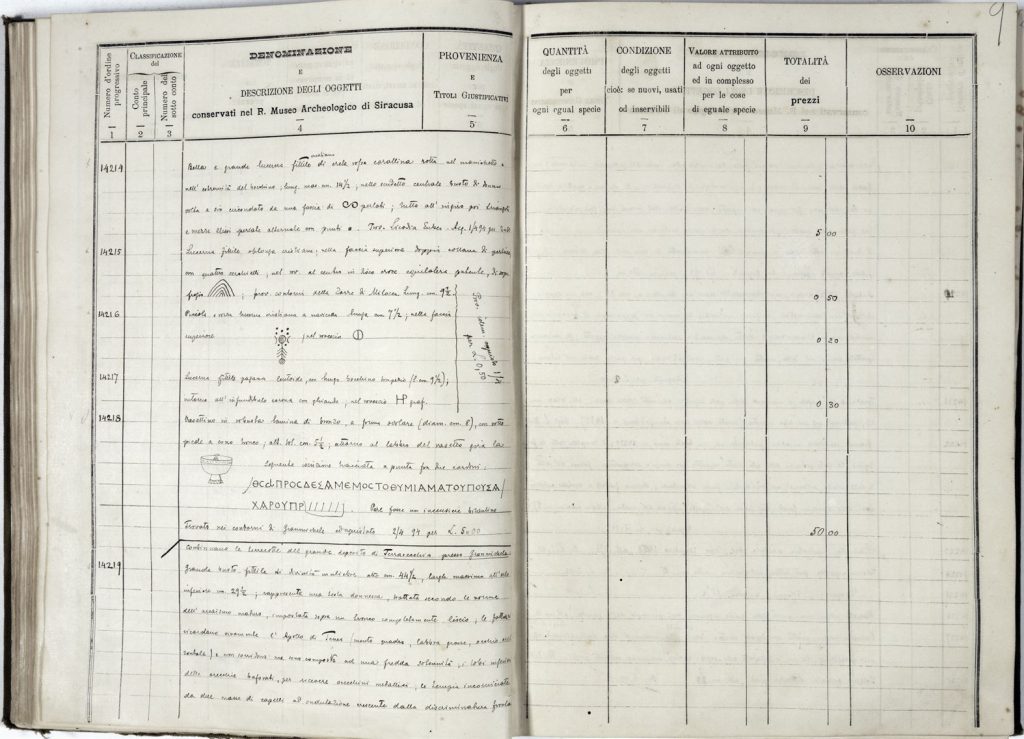 9
Numero d'ordine progressivo
CLASSIFICAZIONE del
Conto principale
Numero del sotto conto
DENOMINAZIONE
E
DESCRIZIONE DEGLI OGGETTI
conservati nel R. Museo Archeologico di Siracusa
PROVENIENZA
E
TITOLI GIUSTIFICATIVI
QUANTITÀ
degli oggetti
per
ogni egual specie
CONDIZIONE
degli oggetti
cioè: se nuovi, usati
od inservibili
VALORE ATTRIBUITO
ad ogni oggetto
ed in complesso
per le cose
di eguale specie
TOTALITÀ
dei
prezzi
OSSERVAZIONI
1 2 3 4 5 6 7 8 9 10
cristiana
14214 Bella e grande lucerna fittile di creta rossa corallina rotta nel manichetto e
nell'estremità del becchino; lung. mas. cm. 14 1/2; nello scudetto centrale busto di
volta a sin circondato da una fascia di perlati; tutto all'ingiro poi triangoli
e alternate con punti. Prov. Licodia Eubea. Acq. 5 00
14215 Lucerna fittile oblunga cristiana; nella faccia superiore doppia collana di
con quattro cerchielli; nel rov. al centro in croce equilatera patente, di sopra
; prov. contorni della Torre di Melocca Lung. cm. 9 1/2 0 50
14216 Piccola e rozza lucerna cristiana a navicella lunga cm 7 1/2; nella faccia
superiore ; nel rovescio 0 20
Prov. idem acquistate 1/4
per L. 0,50
14217 Lucerna fittile pagana lentoide, con lungo becchino (l. cm 9 1/2),
intorno all'infundibulo corona con ghiande, nel rovescio graf. 8 0 30
14218 Vasettino in robusta lamina di bronzo, a forma ovolare (diam. cm. 8), con sotto
piede a cono tronco; alt. tot. cm. 5 1/2; attorno al labbro del vasetto gira la
seguente iscrizione tracciata a punta fra due cordoni:
/ΘCΔΠΡΟCΔΕSΔΜΕΜΟCΤΟΘΥΜΙΑΜΑΤΟΥΠΟΥSΔ/
ΧΑΡΟΥΠΡ//////. Pare fosse un incensiere bizantino
Trovato nei contorni di Grammichele acquistato 2/4 94 per L. 50 00 50 00
Continuano le terrecotte del grande deposito di Terravecchia presso Grammichele
14219 Grande busto fittile di divinità muliebre alto cm. 44 1/2, largh. massima all'orlo
inferiore cm. 29 1/2; rappresenta una testa donnesca, trattata secondo le norme
dell'arcaismo maturo, impostata sopra un tronco completamente liscio; le fattezze
ricordano vivamente l'Apollo di Tenea (mento quadro, labbra grosse,
) e non sorridono ma sono composte ad una fredda solennità, i lobi inferiori
delle orecchie traforati, per ricevere orecchini metallici; la tenia incorniciata
da due masse di capelli ad ondulazione crescente dalla discriminatura frontale